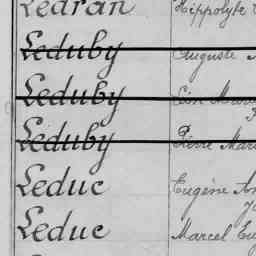 Ledran Hippolyte
Leduby Auguste
Leduby Léon
Leduby Pierre
Leduc Eugène
Leduc Marcel